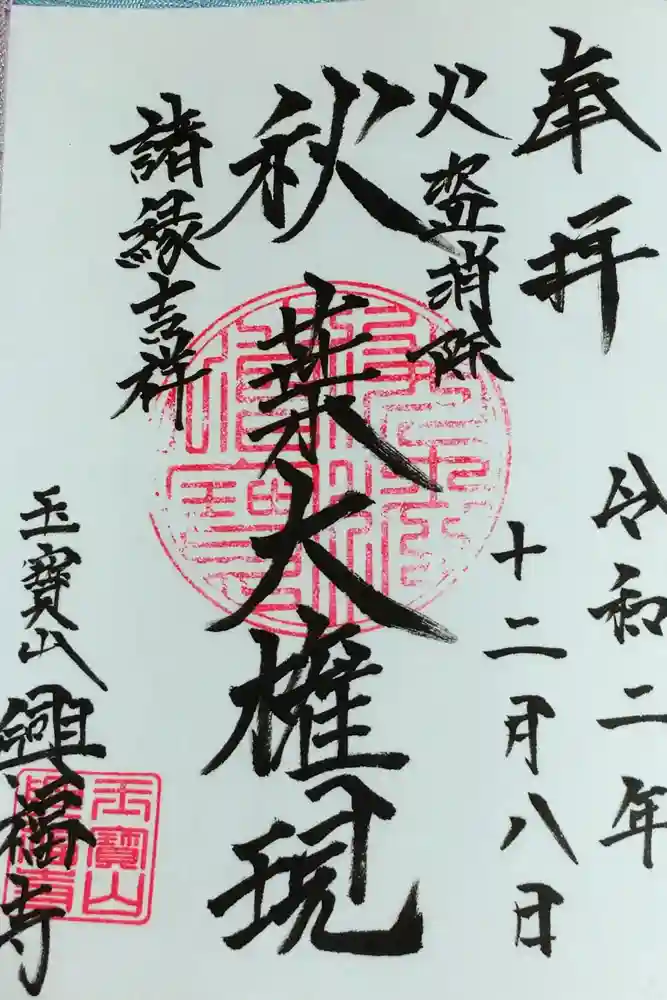 奉拝
令和二年
十二月八日
火盗消除
秋葉大権現
諸縁吉祥
玉寶山
興福寺
玉寶山